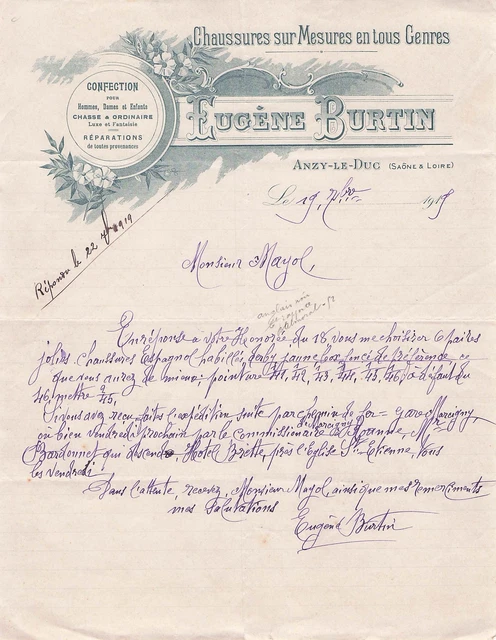 Chaussures sur Mesures en tous Genres
CONFECTION
POUR
Hommes, Dames et Enfants
CHASSE & ORDINAIRE
Luxe et Fantaisie
RÉPARATIONS
de toutes provenances
EUGÈNE BURTIN
ANZY-LE-DUC (SAÔNE & LOIRE)
Le 19, 7bre 1919
Répondu le 22 1919
Monsieur Mayol,
En réponse à Votre Honorée du 18 vous me choisirez 6 paires
jolies chaussures Espagnol habillés, derby jaune box foncé de préférence ce
que vous aurez de mieux pointure 41, 42, 43, 44, 45, 46, à défaut du
46 mettre 45,
Si vous avez reçu faites l'expédition suite par Chemin de fer = gare Marcigny,
ou bien Vendredi prochain par le Commissionaire de Marcigny à Roanne, Mr
Bardonnet qui descend, Hotel Brette, près l'Eglise St Etienne, tous
les vendredi
Dans l'attente, recevez, Monsieur Mayol ainsi que mes remerciments
mes salutations
Eugène Burtin